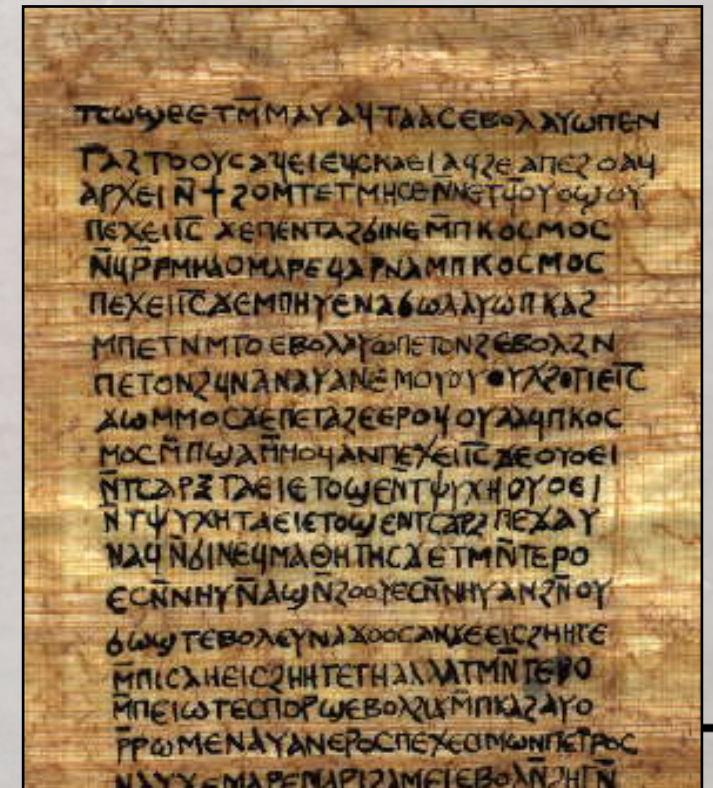 ⲡⲥⲱϣⲉⲉⲧⲙ̅ⲙⲁⲩⲁϥⲧⲁⲁⲥⲉⲃⲟⲗⲁⲩⲱⲡⲉⲛ
ⲧⲁϩⲧⲟⲟⲩⲥⲁϥⲉⲓⲉϥⲥⲕⲁⲉⲓⲁϥϩⲉⲁⲡⲉϩⲟⲁϥ
ⲁⲣⲭⲉⲓⲛ̅ϯϩⲟⲙⲧⲉⲧⲙⲏⲥⲉⲛ̅ⲛⲉⲧϥⲟⲩⲟϣⲟⲩ
ⲡⲉϫⲉⲓ̅ⲥ̅ϫⲉⲡⲉⲛⲧⲁϩϭⲓⲛⲉⲙ̅ⲡⲕⲟⲥⲙⲟⲥ
ⲛ̅ϥⲣ̅ⲣⲙⲙⲁⲟⲙⲁⲣⲉϥⲁⲣⲛⲁⲙⲡⲕⲟⲥⲙⲟⲥ
ⲡⲉϫⲉⲓ̅ⲥ̅ϫⲉⲙⲡⲏⲩⲉⲛⲁϭⲱⲗⲁⲩⲱⲡⲕⲁϩ
ⲙⲡⲉⲧⲛⲙⲧⲟⲉⲃⲟⲗⲁⲩⲱⲡⲉⲧⲟⲛϩⲉⲃⲟⲗϩⲛ
ⲡⲉⲧⲟⲛϩϥⲛⲁⲛⲁⲩⲁⲛⲉⲙⲟⲩ
ϫⲱⲙⲙⲟⲥϫⲉⲡⲉⲧⲁϩⲉⲉⲣⲟϥⲟⲩⲁⲁϥⲡⲕⲟⲥ
ⲙⲟⲥⲙ̅ⲡϣⲁⲙ̅ⲙⲟϥⲁⲛⲡⲉϫⲉⲓ̅ⲥ̅ϫⲉⲟⲩⲟⲉⲓ
ⲛ̅ⲧⲥⲁⲣⲝⲧⲁⲉⲓⲉⲧⲟϣⲉⲛ̅ⲧⲯⲩⲭⲏⲟⲩⲟⲉⲓ
ⲛ̅ⲧⲯⲩⲭⲏⲧⲁⲉⲓⲉⲧⲟϣⲉⲛⲧⲥⲁⲣⲝⲡⲉϫⲁⲩ
ⲛⲁϥⲛ̅ϭⲓⲛⲉϥⲙⲁⲑⲏⲧⲏⲥϫⲉⲧⲙⲛ̅ⲧⲉⲣⲟ
ⲉⲥⲛ̅ⲛⲏⲩⲛ̅ⲁϣⲛ̅ϩⲟⲟⲩⲉⲥⲛ̅ⲛⲏⲩⲁⲛϩⲛ̅ⲟⲩ
ϭⲱϣⲧⲉⲃⲟⲗⲉⲩⲛⲁϫⲟⲟⲥⲁⲛϫⲉⲉⲓⲥϩⲏⲏⲧⲉ
ⲙ̅ⲡⲓⲥⲁⲏⲉⲓⲥϩⲏⲏⲧⲉⲧⲏⲁⲗⲗⲁⲧⲙⲛ̅ⲧⲉⲣⲟ
ⲙ̅ⲡⲉⲓⲱⲧⲉⲥⲡⲟⲣϣⲉⲃⲟⲗϩⲓϫⲙ̅ⲡⲕⲁϩⲁⲩⲱ
ⲣ̅ⲣⲱⲙⲉⲛⲁⲩⲁⲛⲉⲣⲟⲥⲡⲉϫⲉⲥⲓⲙⲱⲛⲡⲉⲧⲣⲟⲥ
ⲛⲁⲩϫⲉⲙⲁⲣⲉⲙⲁⲣⲓϩⲁⲙⲉⲓⲉⲃⲟⲗⲛ̅ϩⲏⲧⲛ̅